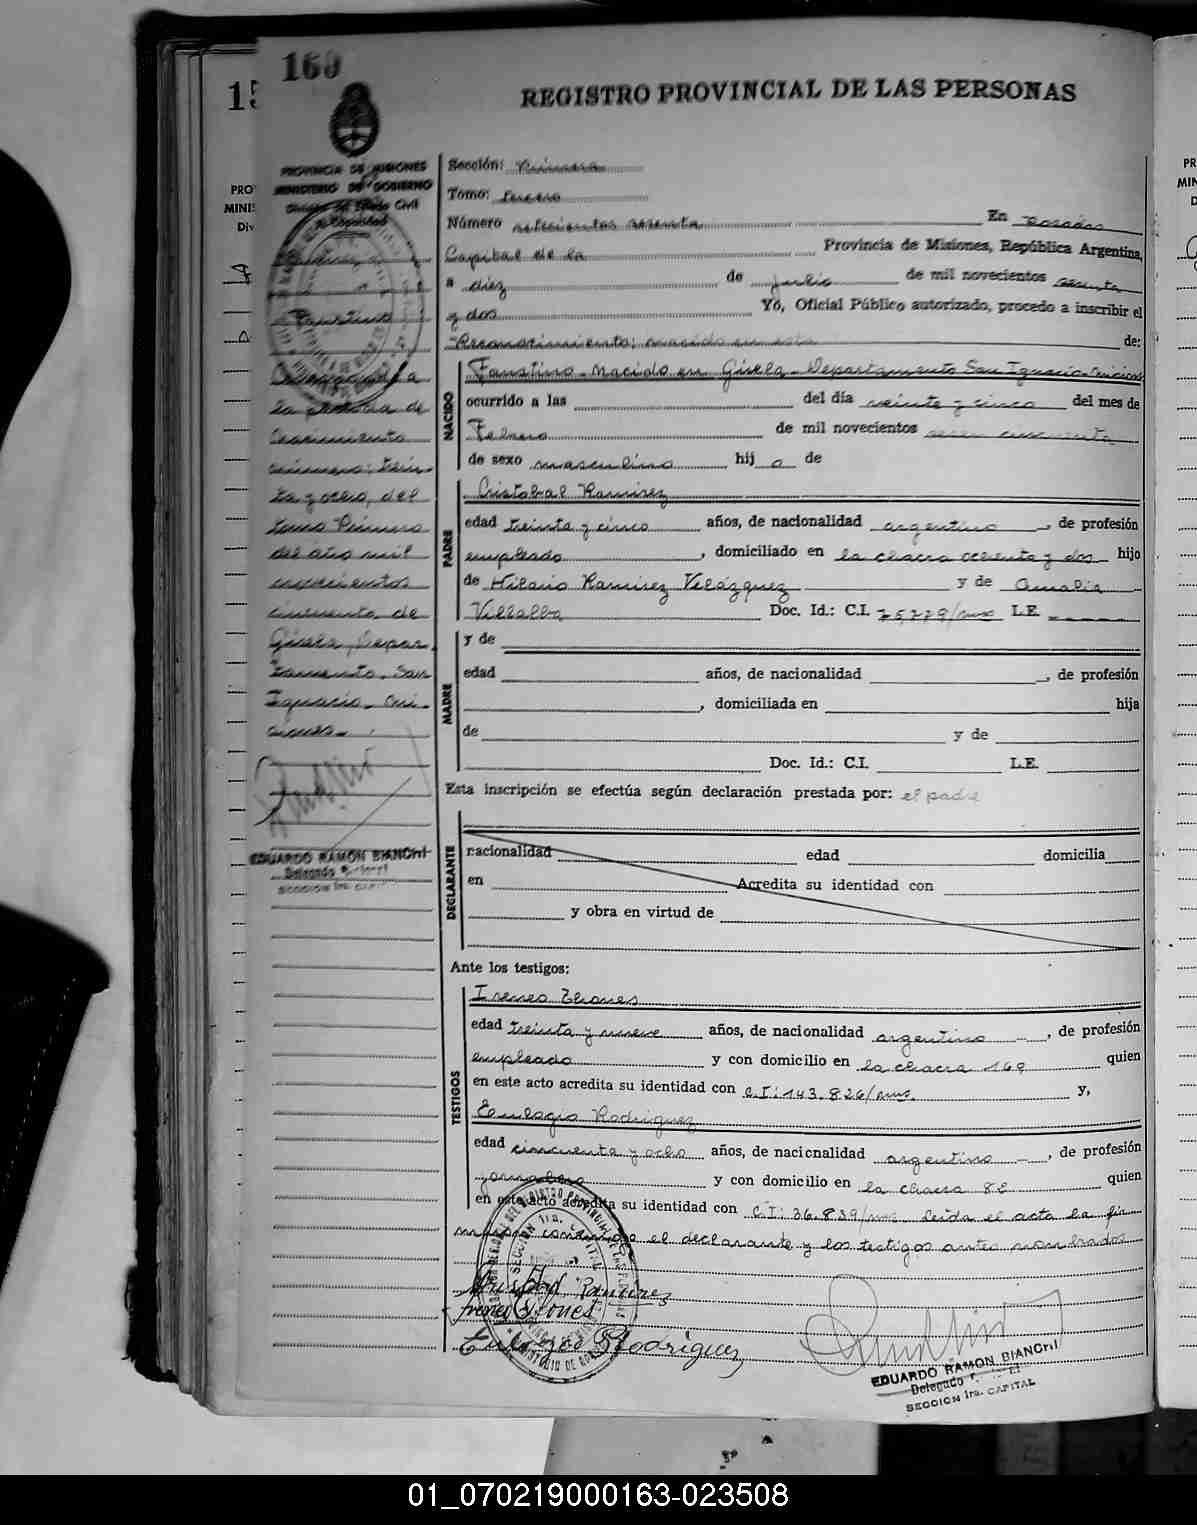 160
REGISTRO PROVINCIAL DE LAS PERSONAS
PROVINCIA DE MISIONES
MINISTERIO DE GOBIERNO
Sección: Primera
Tomo: tercero
Número setecientos sesenta En Posadas
Capital de la Provincia de Misiones, República Argentina,
a diez de julio de mil novecientos sesenta
y dos Yó, Oficial Público autorizado, procedo a inscribir el
Reconocimiento: nacido en esta de:
NACIDO
Faustino - nacido en Gisela - Departamento San Ignacio - Misiones
ocurrido a las del día veinte y cinco del mes de
Febrero de mil novecientos cincuenta
de sexo masculino hij o de
PADRE
Cristobal Ramirez
edad treinta y cinco años, de nacionalidad argentino, de profesión
empleado, domiciliado en la chacra ochenta y dos hijo
de Hilario Ramirez Velázquez y de Amalia
Villalba Doc. Id.: C.I. 75,779/mns L.E.
MADRE
y de
edad años, de nacionalidad, de profesión
, domiciliada en hija
de y de
Doc. Id.: C.I. L.E.
Esta inscripción se efectúa según declaración prestada por: el padre
DECLARANTE
nacionalidad edad domicilia
en Acredita su identidad con
y obra en virtud de
Ante los testigos:
TESTIGOS
Ireneo
edad treinta y nueve años, de nacionalidad argentino, de profesión
empleado y con domicilio en la chacra 169 quien
en este acto acredita su identidad con C.I: 143.826/mns. y,
Eulogio Rodriguez
edad cincuenta y ocho años, de nacionalidad argentino -, de profesión
jornalero y con domicilio en la chacra 82 quien
en este acto acredita su identidad con C.I: 36.839/mns. Leída el acta la fir
man conmigo el declarante y los testigos antes nombrados
Cristobal Ramirez
Eulogio Rodriguez
EDUARDO RAMON BIANCHI
Delegado
SECCION 1ra. CAPITAL
Faustino
Corresponde a
la partida de
nacimiento
número: trein-
ta y ocho, del
tomo Primero
del año mil
novecientos
cincuenta de
Gisela, Depar-
tamento San
Ignacio - Mi-
siones -
EDUARDO RAMON BIANCHI
Delegado
SECCION 1ra. CAPITAL
15
PRO
MINI
Div
PR
MIN
D
01_070219000163-023508